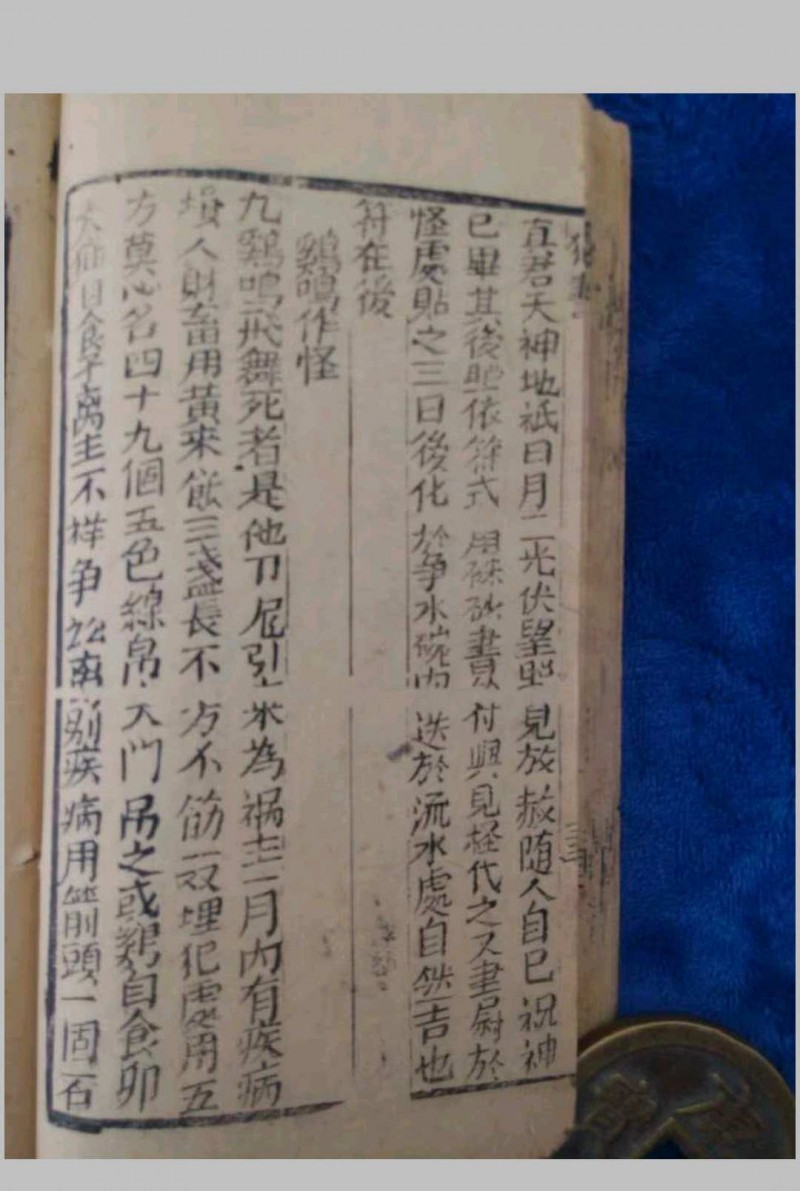 真君天神地祇日月二光伏望照見放赦随人自已祝神
已畢其後照依符式用硃砂書付與見怪代之又書尉於
怪處貼之三日後化於争水碗内送於流水處自然吉也
符在後
鷄鳴作怪
九鷄鳴飛舞死者是他刀尼引来為禍主一月内有疾病
損人財畜用黄来飯三盏長不方不筯一双埋犯處用五
方莫心名四十九個五色線帛天門吊之或鷄自食卵
自食子离主不祥争訟南别疾病用箭頭一固石